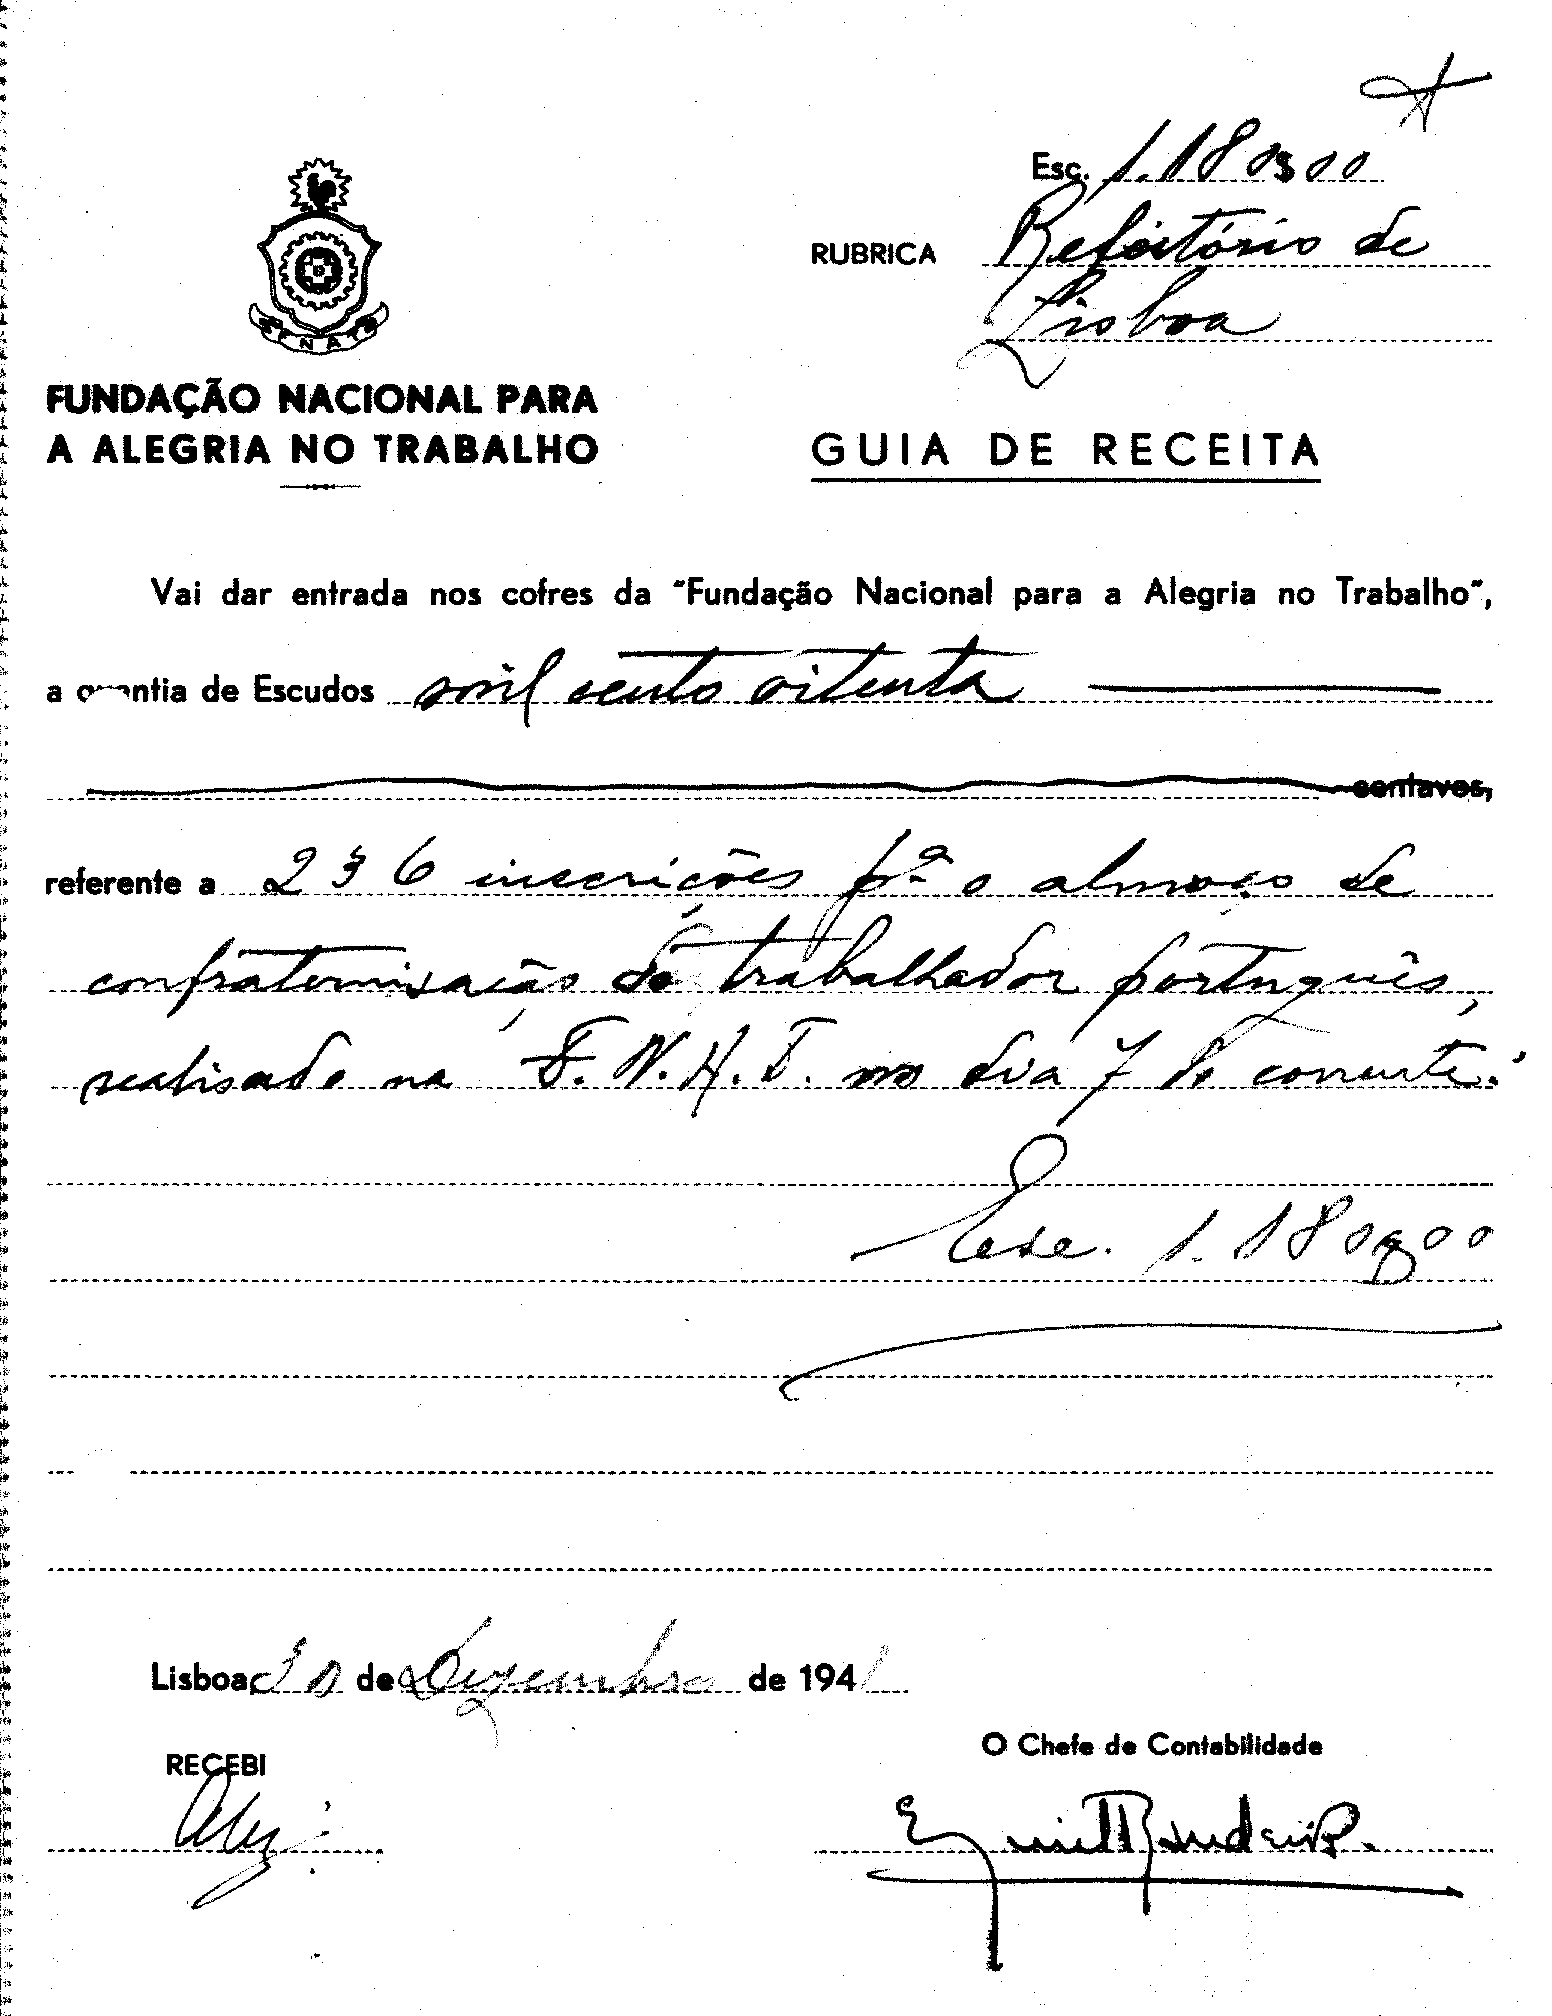 Esc. 1.180$00
RUBRICA Refeitório de
Lisboa
FNAT
FUNDAÇÃO NACIONAL PARA
A ALEGRIA NO TRABALHO
GUIA DE RECEITA
Vai dar entrada nos cofres da "Fundação Nacional para a Alegria no Trabalho",
a quantia de Escudos mil cento oitenta
centavos,
referente a 236 inscrições pª o almoço de
confraternisação do trabalhador português,
realisado na F.N.A.T. no dia 7 do corrente.
Esc. 1.180$00
Lisboa, 30 de Dezembro de 1941
RECEBI
O Chefe de Contabilidade